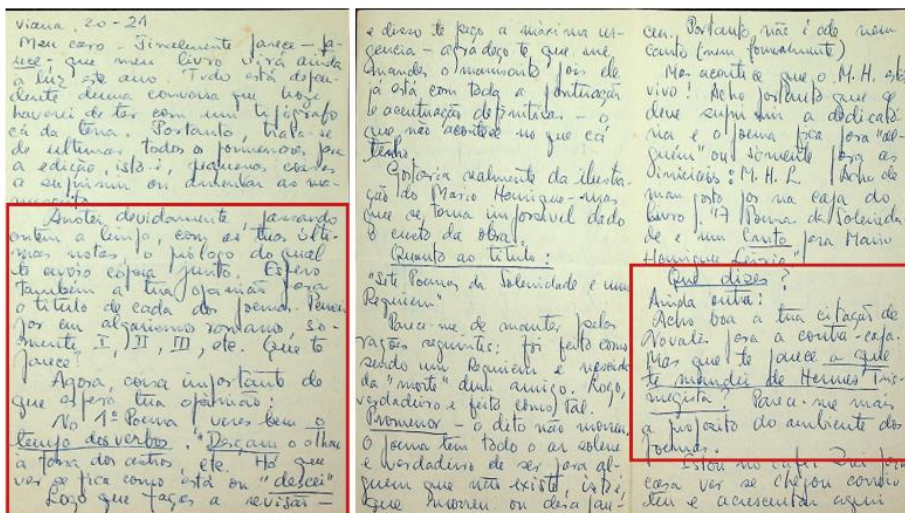 Viana, 20-21
Meu caro - Finalmente parece - pa-
rece - que meu livro virá ainda
à luz este ano. Tudo está depen-
dente duma conversa que hoje
haverei de ter com um tipógrafo
cá da terra. Portanto, trata-se
de ultimar todos os pormenores pra
a edição, isto é, pequenas coisas
a suprimir ou aumentar ao ma-
nuscrito.
Anotei devidamente passando
ontem a limpo, com as tuas últi-
mas notas, o prólogo do qual
te envio cópia junto. Espero
também a tua opinião para
o título de cada dos poemas. Pensei
por em algarismo romano, sò-
mente I, II, III, etc. Que te
parece?
Agora, coisa importante de
que espero tua opinião:
No 1º Poema, veres bem o
tempo dos verbos. "Desçam o olhar
a fossa dos astros, etc. Há que
ver se fica como está ou "descei"
Logo que faças a revisão -
e disso te peço a máxima ur-
gencia - agradeço te que me
mandes o manuscrito pois ele
já está com toda a pontuação
e acentuação definitivas - o
que não acontece no que cá
tenho.
Gostaria realmente da ilustra-
ção do Mario Henrique - mas
que se torna impossível dado
o custo da obra.
Quanto ao título:
"Sete Poemas da Solenidade e um
Requiem"
Parece-me de manter, pelas
razões seguintes: foi feito como
sendo um Requiem e nascido
da "morte" dum amigo. Logo,
verdadeiro e feito como tal.
Promenor - o dito não morreu.
O poema tem todo o ar solene
e verdadeiro de ser para al-
guém que não existe, isto é,
que morreu ou desapare-
ceu. Portanto, não é ode nem
canto (nem formalmente)
Mas acontece que o M. H. está
vivo! Acho portanto que se
deve suprimir a dedicató-
ria e o poema fica para "al-
guém" ou sòmente para as
iniciais: M. H. L. Acho de
mau gosto por na capa do
livro: "7 Poemas da Solenida-
de e um Canto para Mario
Henrique Leiria."
Que dizes?
Ainda outra:
Acho boa a tua citação de
Novalis para a contra-capa.
Mas que te parece a que
te mandei de Hermes Tris-
megista? Parece-me mais
a proposito do ambiente dos
Poemas.
Estou no café. Irei para
casa ver se chegou correio
teu e acrescentar aqui